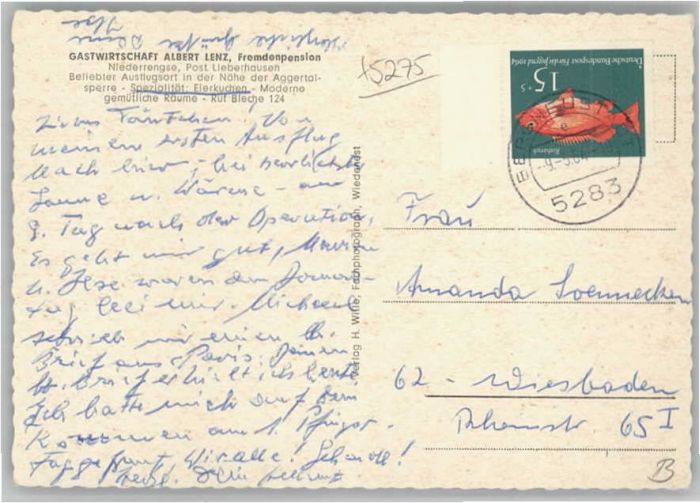 Herzliche Grüße Deine
Ilse
GASTWIRTSCHAFT ALBERT LENZ, Fremdenpension
Niederrengse, Post Lieberhausen
Beliebter Ausflugsort in der Nähe der Aggertal-
sperre - Spezialität: Eierkuchen - Moderne
gemütliche Räume - Ruf Bleche 124
Liebes Tantchen! Von
meinem ersten Ausflug
nach hier, bei herrlichster
Sonne u. Wärme - am
9. Tag nach der Operation,
Es geht mir gut,
u. Ilse waren den
tag bei mir. Michael
schrieb mir einen lb.
Brief aus Paris. Deinen
lb. Brief erhielt ich heute
Ich hatte mich auf Dein
Kommen am 1. Pfingst-
tag gefreut, Wir alle! Schade!
herzl. Dein Helmut
Verlag H. Wille, Fachphotograph, Wiedenest
+5275
Deutsche Bundespost Für die Jugend 1964
15+5
Rotbarsch
-9.-5.64
5283
Frau
Amanda Soennecken
62 - Wiesbaden
Rheinstr. 65 I
B